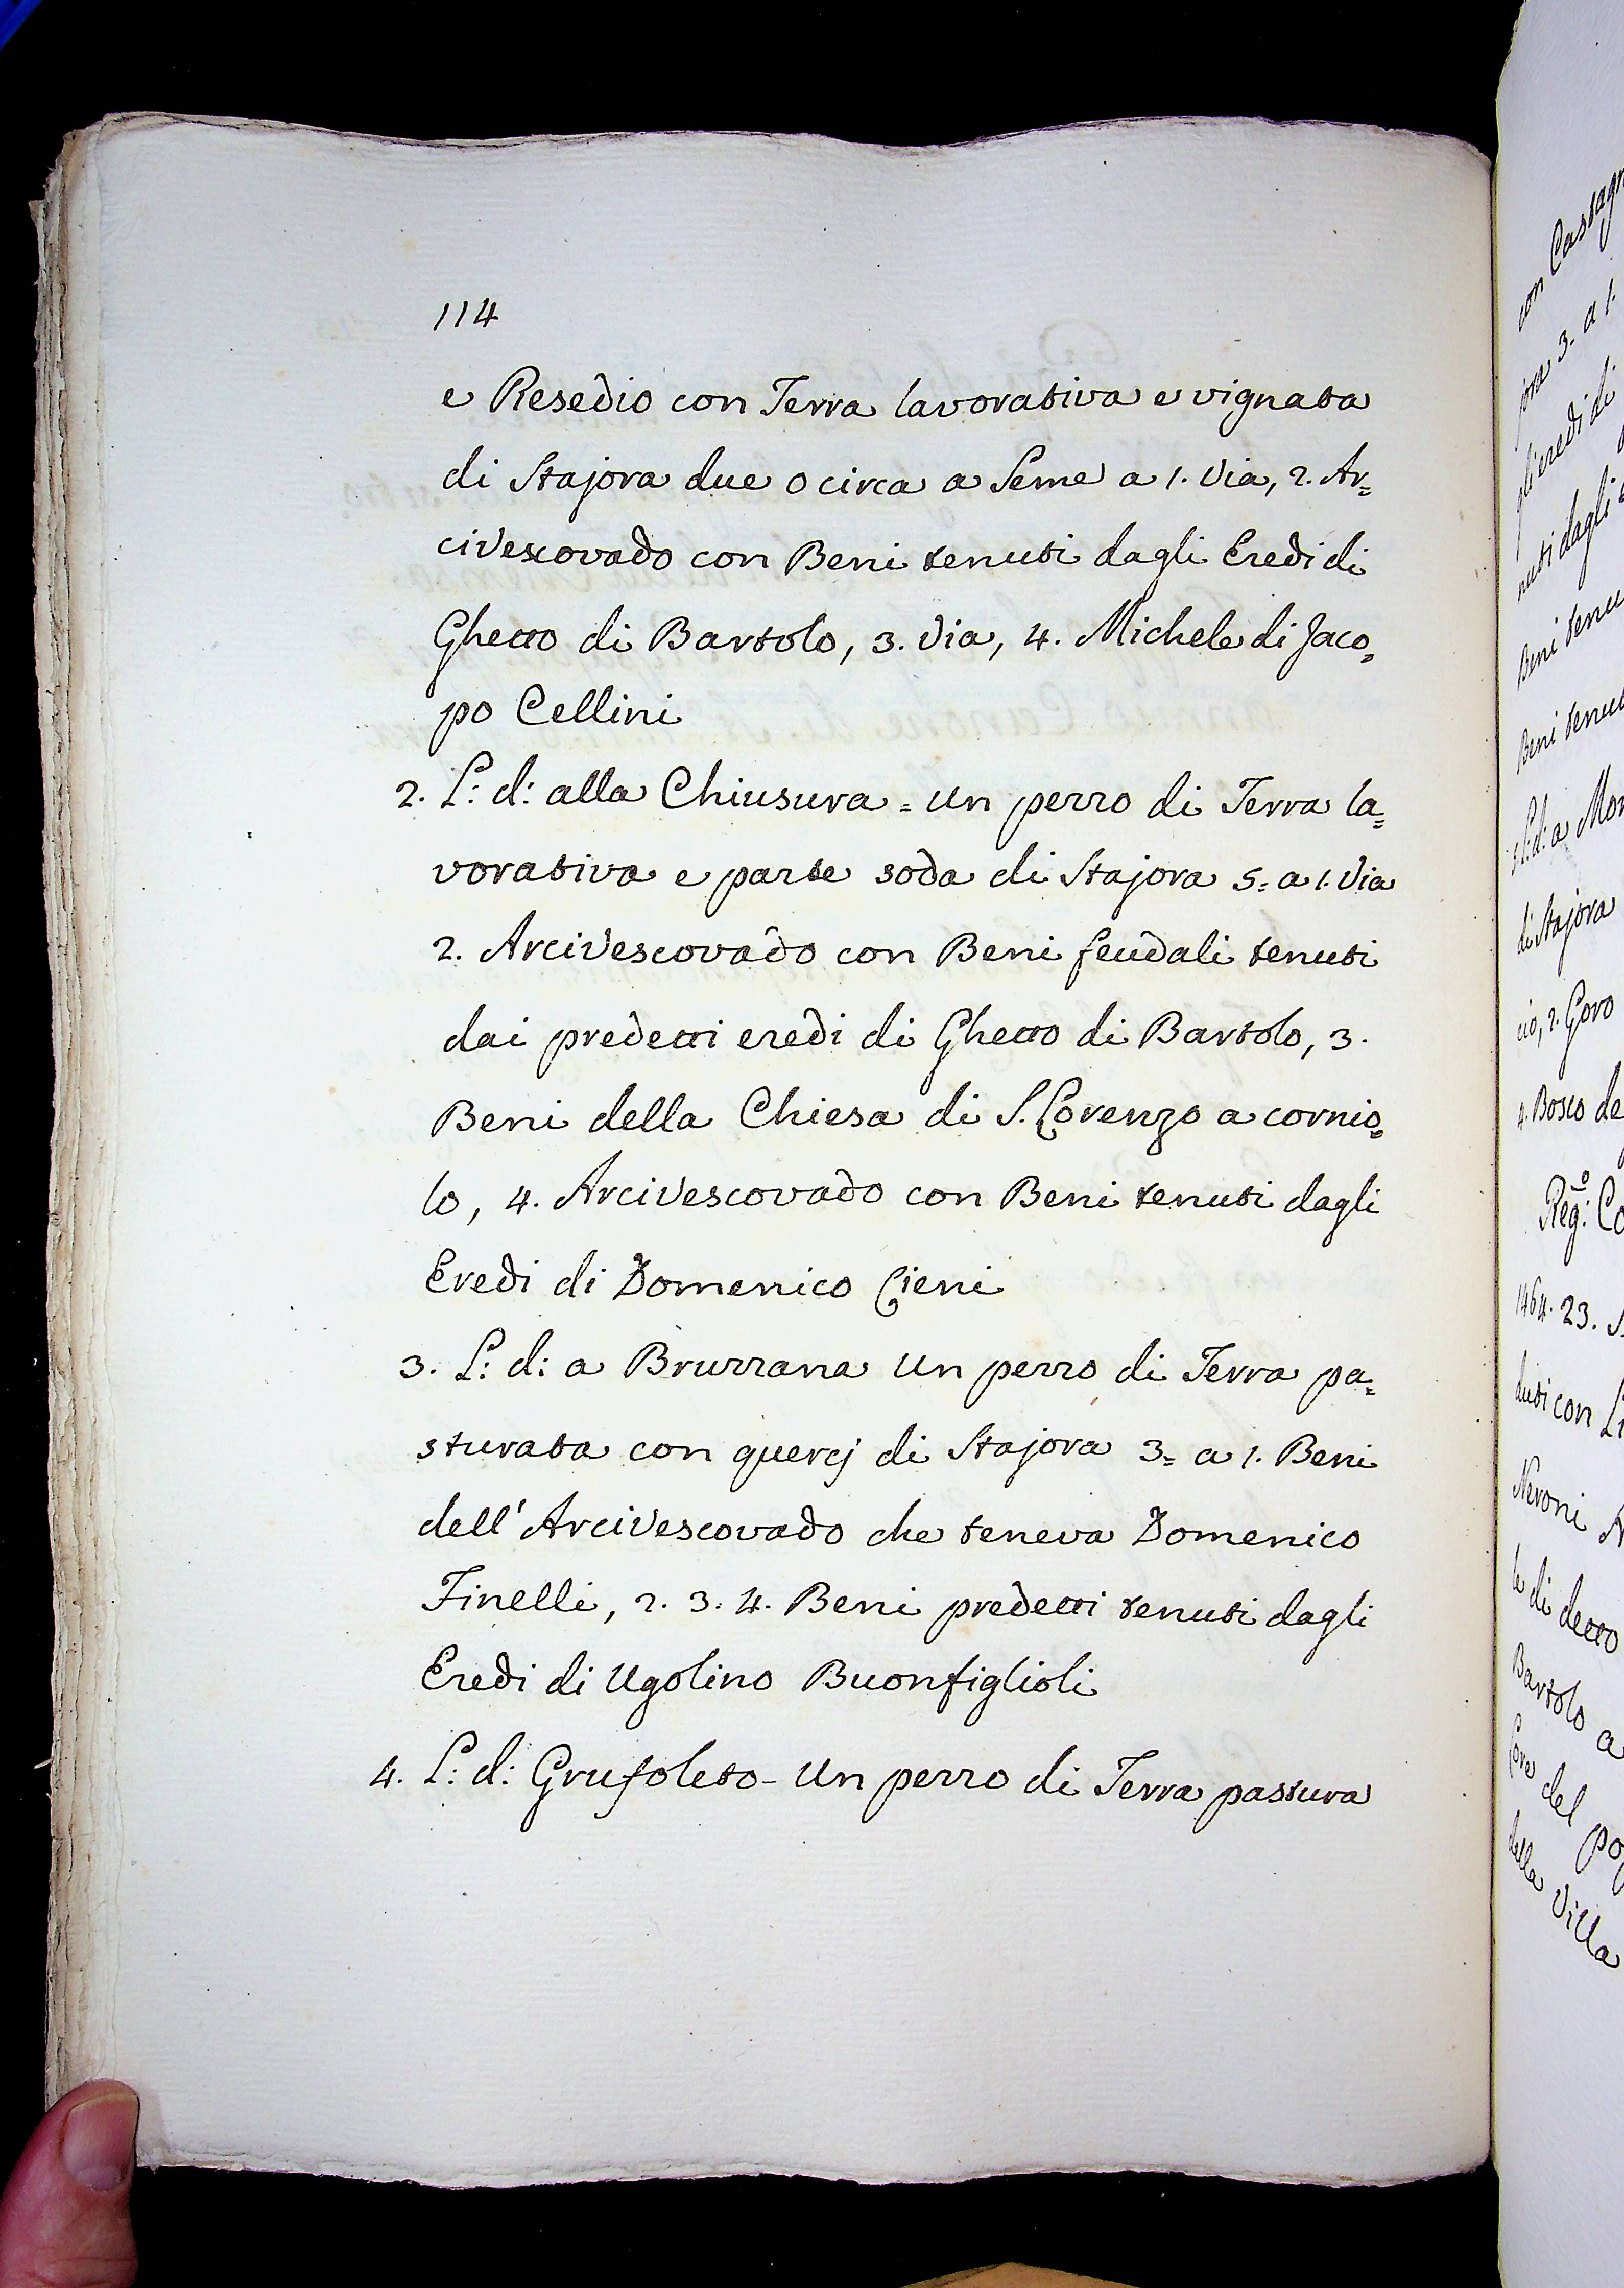 114
e Resedio con Terra lavorativa e vignata
di Stajora due o circa a Seme a 1. Via, 2. Ar=
civescovado con Beni tenuti dagli Eredi di
Ghetto di Bartolo, 3. Via, 4. Michele di Jaco=
po Cellini
2. L: d: alla Chiusura = Un pezzo di Terra la=
vorativa e parte soda di Stajora 5= a 1. Via
2. Arcivescovado con Beni feudali tenuti
dai predetti eredi di Ghetto di Bartolo, 3.
Beni della Chiesa di S. Lorenzo a cornio=
lo, 4. Arcivescovado con Beni tenuti dagli
Eredi di Domenico Cieni
3. L: d: a Bruzzana Un pezzo di Terra pa=
sturata con quercj di Stajora 3= a 1. Beni
dell'Arcivescovado che teneva Domenico
Finelli, 2. 3. 4. Beni predetti tenuti dagli
Eredi di Ugolino Buonfiglioli
4. L: d: Grufoleto - Un pezzo di Terra pastura
con Castagn
jora 3- a 1.
gli eredi di
nuti dagli
Beni tenu
Beni tenu
L: d: a Mon
di Stajora
cio, 2. Goro
4. Bosco de
Reg:º Co
1464. 23. S
auti con L
Neroni A
le di detto
Bartolo a
fore del po
della Villa